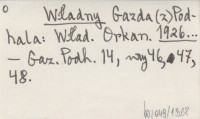 Władny Gazda (z) Pod-
hala: Wład. Orkan. 1926...
— Gaz. Podh. 14, nry 46, 47,
48.